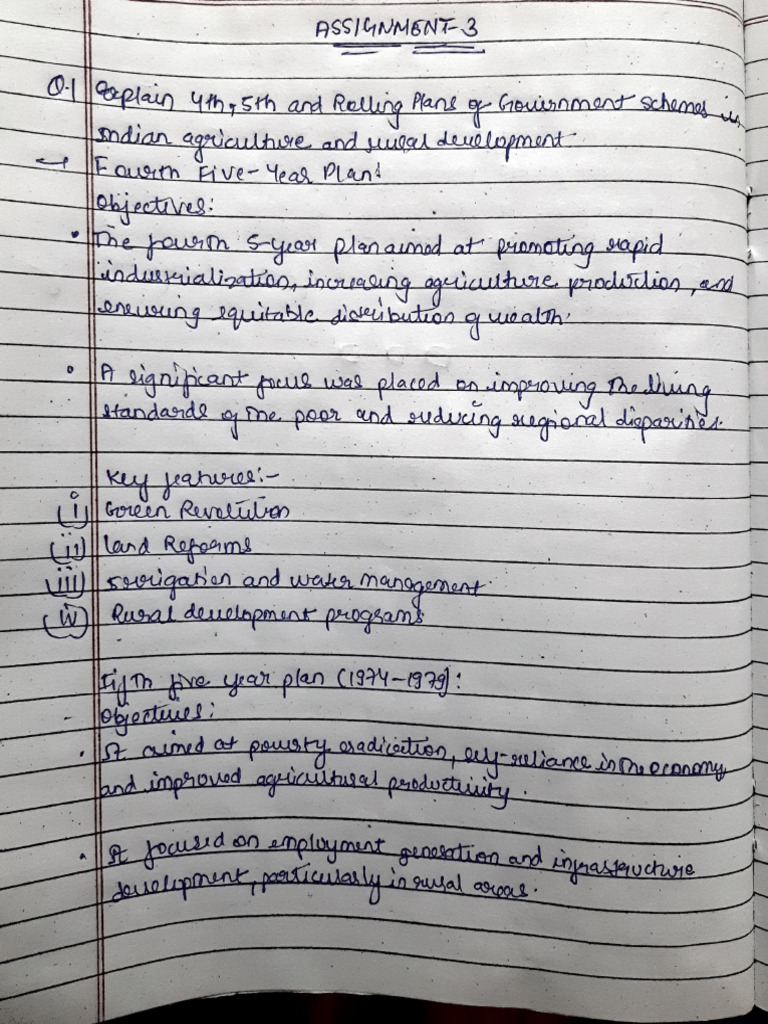 ASSIGNMENT-3
Q.1 Explain 4th, 5th and Rolling Plans of Government schemes in
Indian agriculture and rural development.
→ Fourth Five-Year Plan:
Objectives:
• The fourth 5-year plan aimed at promoting rapid
industrialization, increasing agriculture production, and
ensuring equitable distribution of wealth.
• A significant focus was placed on improving the living
standards of the poor and reducing regional disparities.
Key features:-
(i) Green Revolution
(ii) Land Reforms
(iii) Irrigation and water management.
(iv) Rural development programs
Fifth five year plan (1974-1979):
- Objectives:
• It aimed at poverty eradication, self-reliance in the economy
and improved agricultural productivity.
• It focused on employment generation and infrastructure
development, particularly in rural areas.